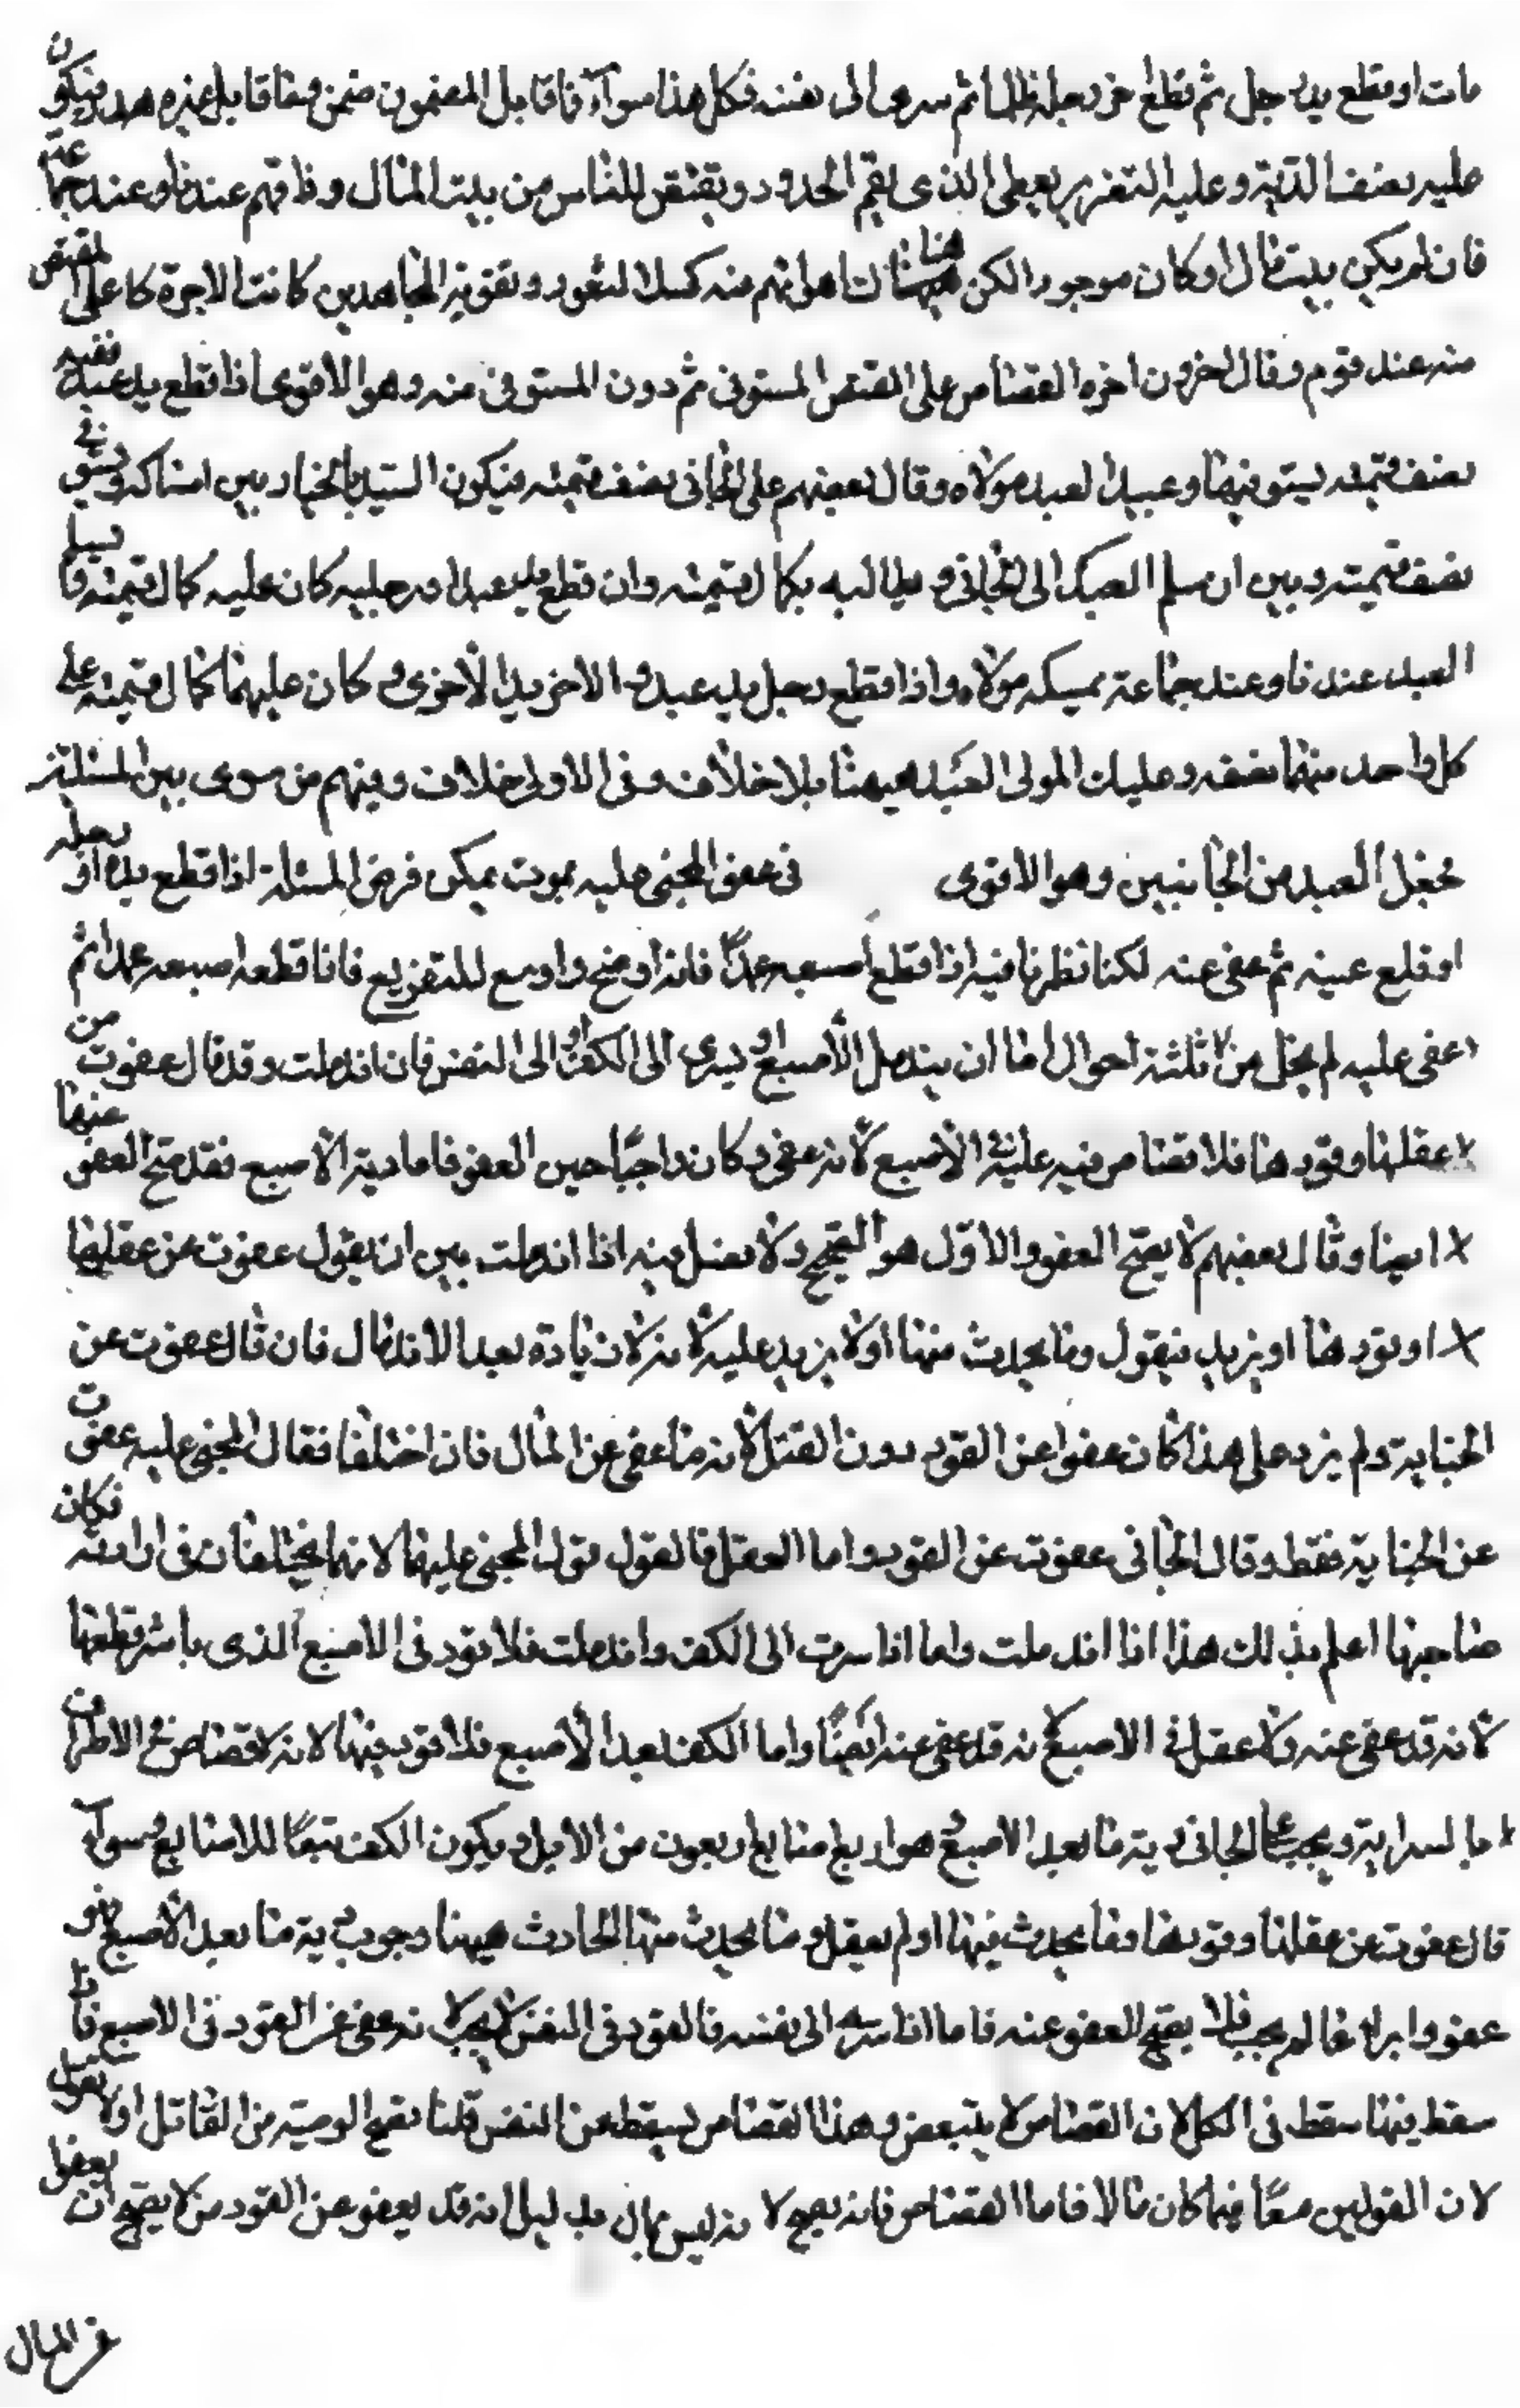 مات او قطع يد رجل ثم قطع اخر رجله ظلما ثم سرى الى نفسه فكل هذا سوآء فما قابل المضمون ضمن وما قابل غيره هدر فيكون
عليه نصف الدية وعليه التعزير يعطى الذى يقيم الحدود ويقتص للناس من بيت المال رزقا فهم عندنا وعند جماعة
فان لم يكن بيت مال او كان موجودا لكن هناك ما هو اهم منه كسد الثغور وتقوية المجاهدين كانت الاجرة على المقتص
منه عند قوم وقال اخرون اجرة القصاص على المقتص المستوفى ثم دون المستوفى منه وهو الاقوى اذا قطع يد عبد ففيه
نصف قيمته يستوفيها وعبيد العبد مولاه وقال بعضهم على الجانى نصف قيمته فيكون السيد بالخيار بين امساكه ويستوفى
نصف قيمته وبين ان يسلم العبد الى الجانى و يطالبه بكمال قيمته وان قطع يد عبد او رجليه كان عليه كمال قيمته ويسلم
العبد عندنا وعند جماعة يمسكه مولاه واذا قطع رجل يد عبد و الاخر يد الاخرى كان عليهما كمال قيمته على
كل واحد منهما نصفه وعليك المولى العبد هيهنا بلا خلاف وفى الاولى خلاف ومنهم من سوى بين المسئلتين
فجعل العبد من الجانبين وهو الاقوى فى عفو المجنى عليه بموت يمكن فرض المسئلة اذا قطع يده او رجله
او قلع عينه ثم عفى عنه لكنا نظرنا فيه اذا قطع اصبعه عمدًا فانه اوضح واوسع للتفريع فاذا قطعه اصبعه عمدا ثم
عفى عليه لم يخل من ثلثة احوال اما ان يندمل الاصبع او يسرى الى الكف او الى النفس فان اندملت وقد قال عفوت من
عقلها وقودها فلا قصاص فيه علينه الاصبع لانه عفى و كان واجبًا حين العفو فاما دية الاصبع فقد صح العفو عنها
ايضا وقال بعضهم لا يصح العفو والاول هو الصحيح ولا فصل فيه اذا اندملت بين ان يقول عفوت عن عقلها
او قودها او يزيد فيقول وما يحدث منها او لا يزيد عليه لانه لا زيادة بعد الاندمال فان قال عفوت عن
الجناية ولم يزد على هذا كان عفوا عن القود دون العقل لانه ما عفى عن المال فان اختلفا فقال المجنى عليه عفوت
عن الجناية فقط وقال الجانى عفوت عن القود واما العقل فالقول قول المجنى عليها لانهما يختلفان فى ارادته فكان
صاحبها اعلم بذلك هذا اذا اندملت واما اذا سرت الى الكف واندملت فلا قود فى الاصبع الذى باشر قطعها
لانه قد عفى عنه ولا عقل فى الاصبع لانه قد عفى عنه ايضًا واما الكف بعد الاصبع فلا قود فيها لانه لا قصاص فى الاطراف
بالسراية ويجب على الجانى دية ما بعد الاصبع هو اربع اصابع اربعون من الابل ويكون الكف تبعًا للاصابع وسوآء
قال عفوت عن عقلها وقودها وما يحدث فيها او لم يقل وما يحدث منها الحادث هيهنا وجوب دية ما بعد الاصبع فهو
عفو وابراء عما لم يجب فلا يصح العفو عنه فاما اذا سرى الى نفسه فالقود فى النفس لا يجب لانه عفى عن القود فى الاصبع فاذا
سقط فيها سقط فى الكل لان القصاص لا يتبعض و هذا القصاص يسقط عن النفس قلنا تصح الوصية من القاتل او لا نقول
لان القولين معًا فيما كان مالا فاما القصاص فانه يصح لا نه ليس بمال بدليل انه قد يعفو عن القود من لا يصح ان يعفوا
عن المال